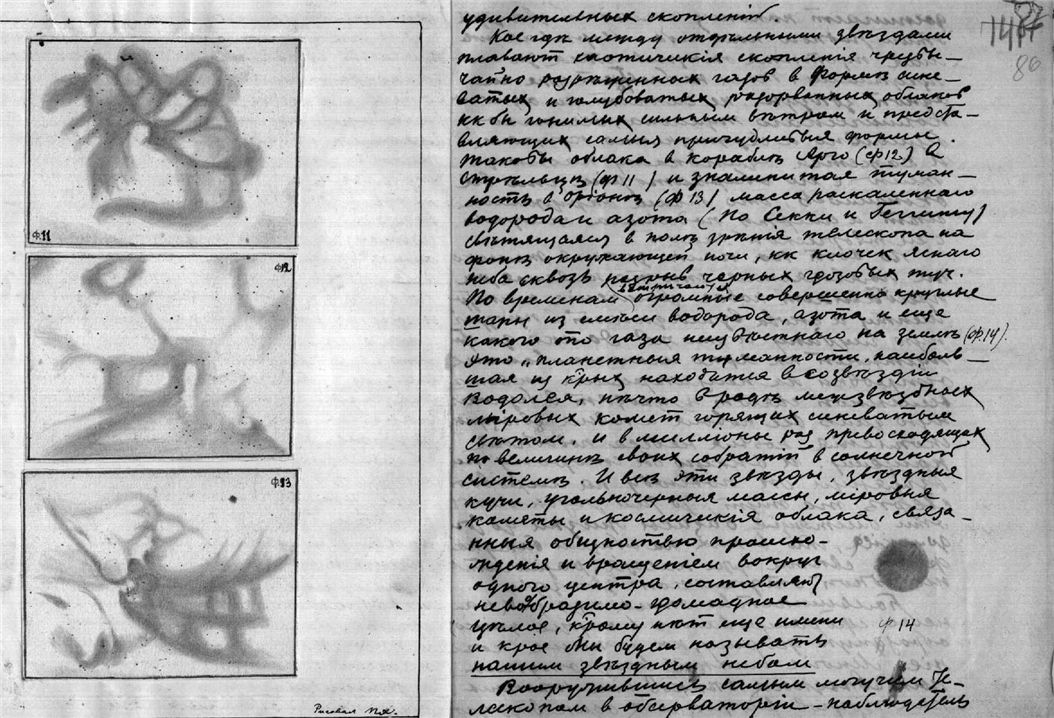 Ф.11
Ф12
Ф.13
Рисовал
удивительных скоплений
Кое гдѣ между отдѣльными звѣздами
плавают хаотическія скопленія чрезвы-
чайно разрѣженных газов в формѣ сине-
ватых и голубоватых разорванных облаков
кк бы гонимых сильным вѣтром и предста-
вляющих самыя причудливыя формы.
Таковы облака в кораблѣ Арго (ф12) в
Стрѣльцѣ (ф11) и знаменитая туман-
ность в Оріонѣ (ф13) масса раскаленнаго
водорода и азота (По Секки и Геггинсу)
свѣтящаяся в полѣ зрѣнія телескопа на
фонѣ окружающей ночи, кк клочек яснаго
неба сквозь разрыв черных грозовых туч.
По временам встрѣчаются огромные совершенно круглые
шары из смѣси водорода, азота и еще
какого то газа неизвѣстнаго на землѣ (ф.14).
Это „планетныя туманности, наиболь-
шая из крых находится в созвѣздіи
Водолея, нѣчто в родѣ междзвѣздных
міровых комет горящих синеватым
свѣтом, и в милліоны раз превосходящих
по величинѣ своих собратій в солнечной
системѣ. И всѣ эти звѣзды, звѣздныя
кучи, угольночерныя массы, міровыя
кометы и космическія облака, связа-
нныя общностью происхо-
жденія и вращеніем вокруг
одного центра, составляют
невообразимо-громадное
цѣлое, крому нѣт еще имени
и крое мы будем называть
нашим звѣздным небом
Вооружившись самым могучим те-
лескопом в обсерваторіи - наблюдатель
ф14
86